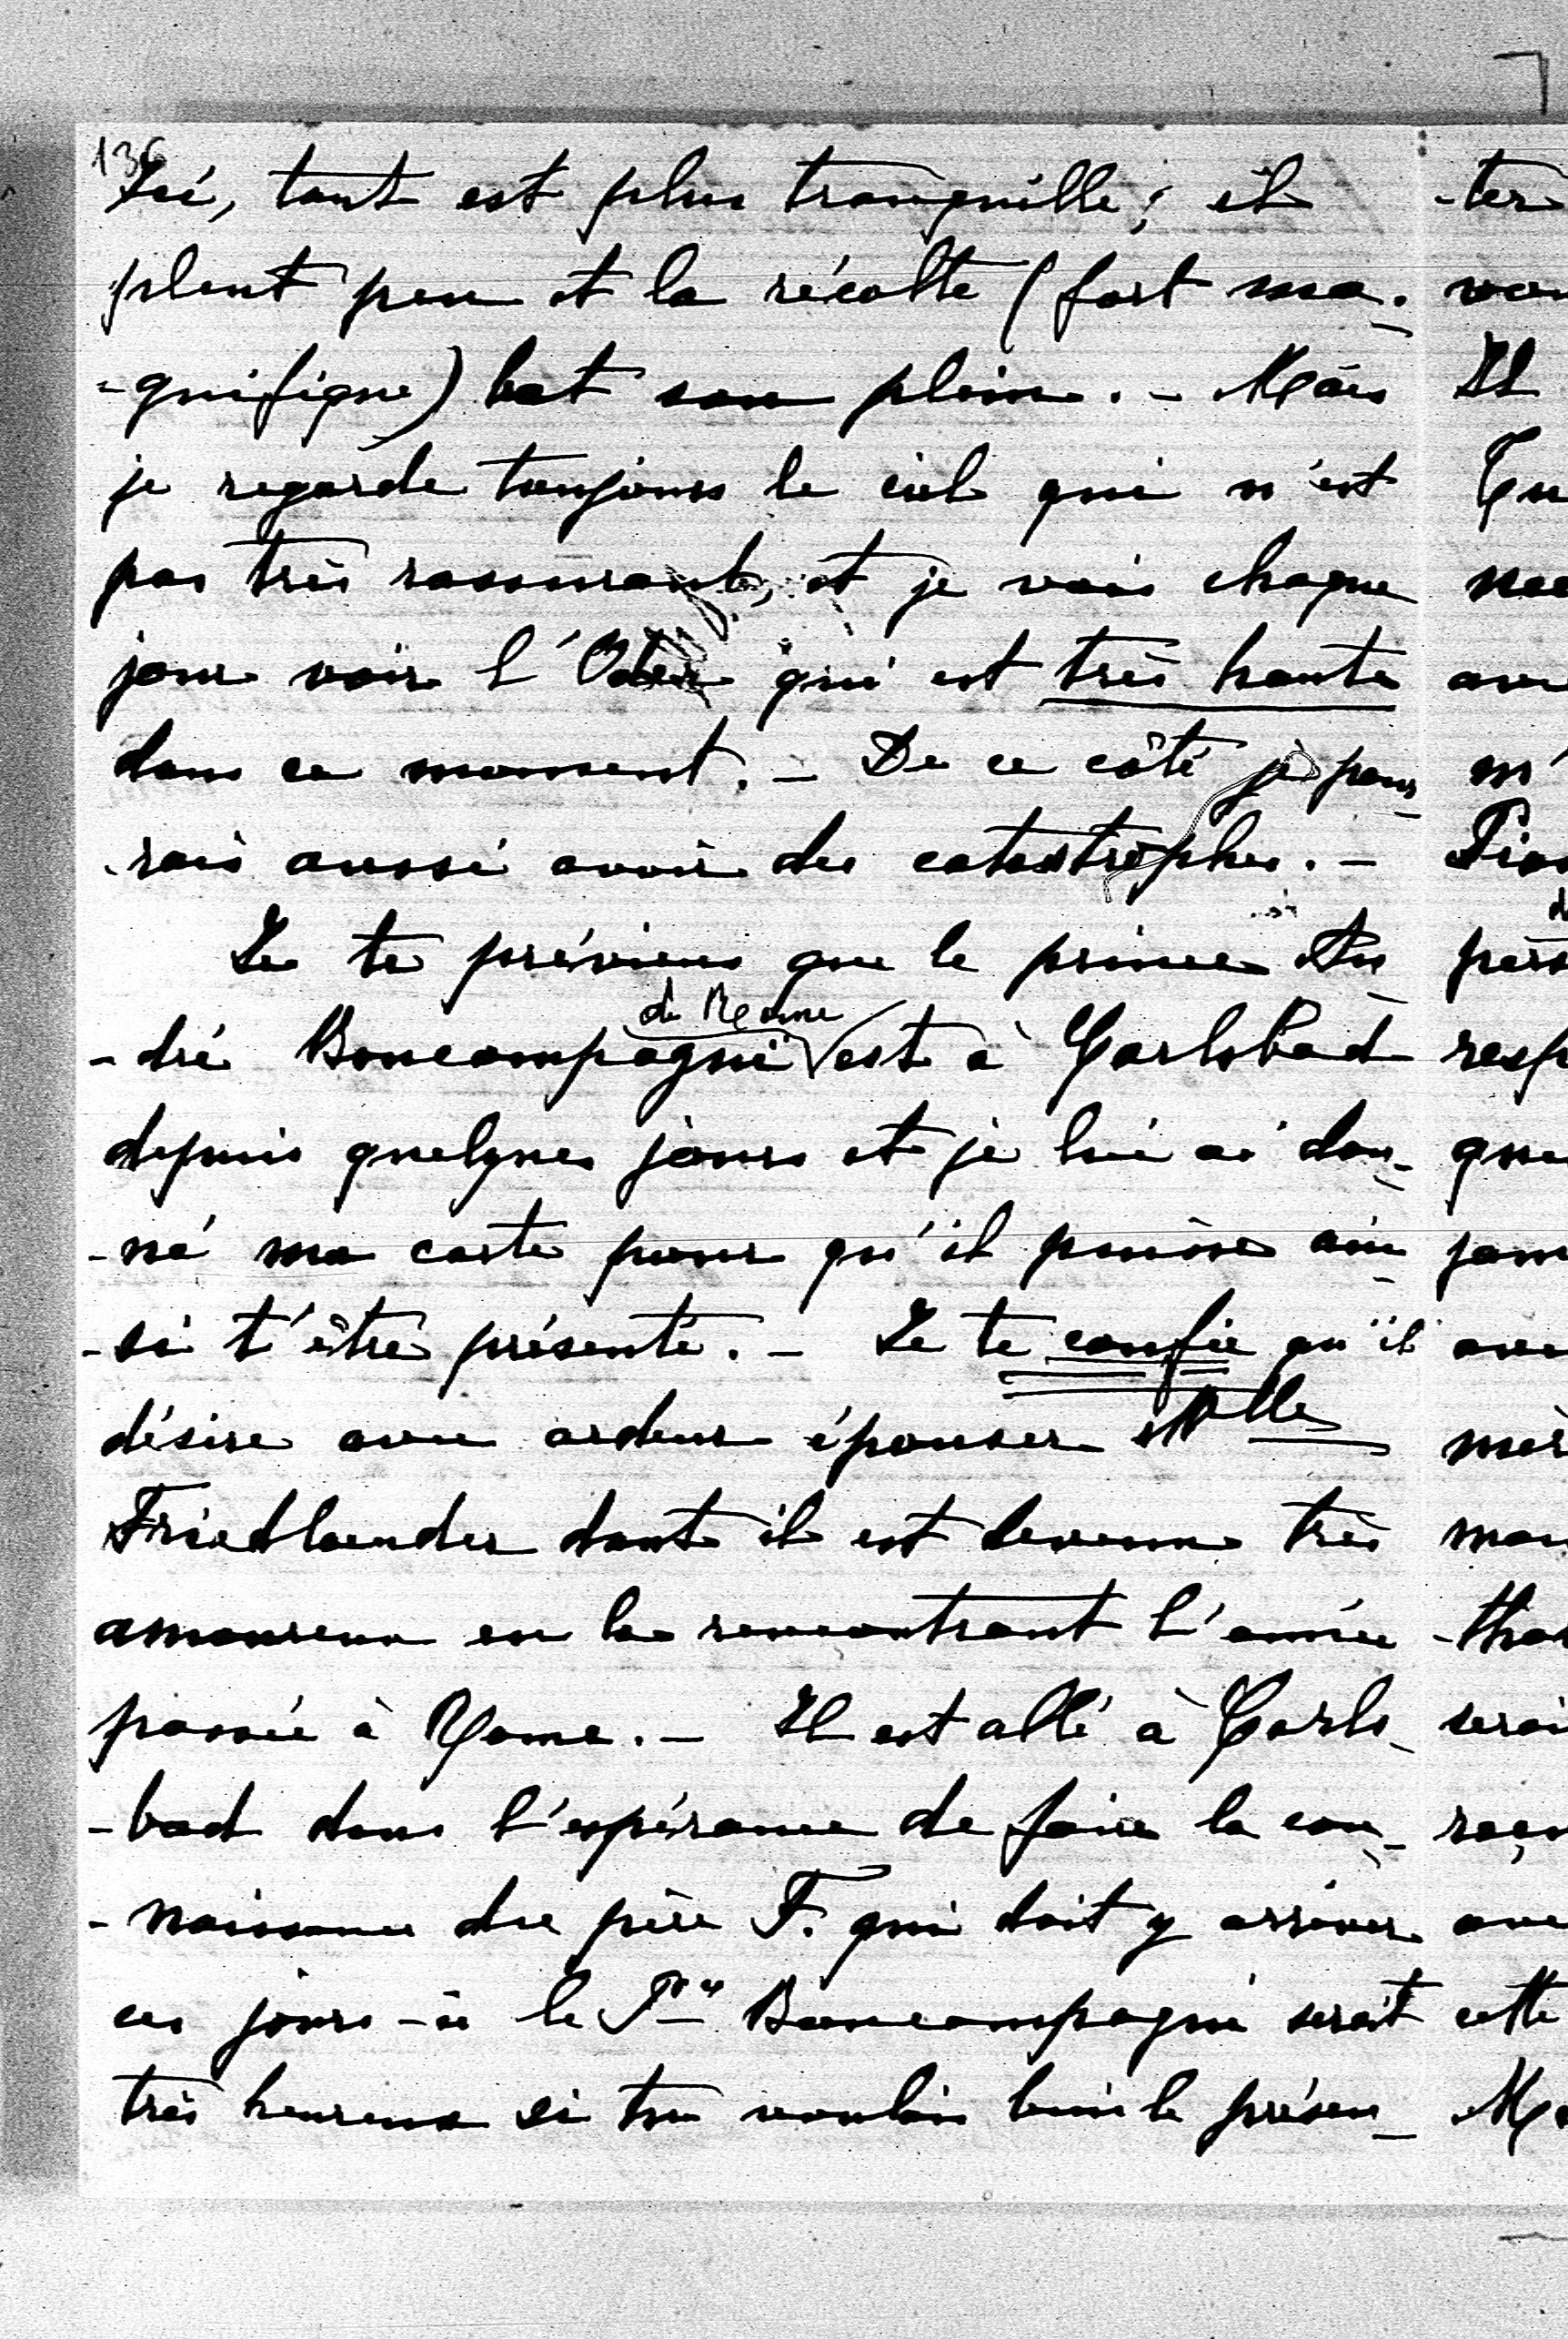 136
Ici, tout est plus tranquille; il
pleut peu et la récolte (fort ma-
-gnifique) bat son plein. - Mais
je regarde toujours le ciel qui n'est
pas très rassurant, et je vais chaque
jour voir l'Oder qui est très haute
dans ce moment. - De ce côté je pour-
-rais aussi avoir des catastrophes. -
Je te préviens que le prince An-
de Rome
-dré Boncompagni est à Carlsbad
depuis quelques jours et je lui ai don-
-né ma carte pour qu'il puisse ain-
-si t'être présenté. - Je te confie qu'il
désire avec ardeur épouser Mlle
Friedlaender dont il est devenu très
amoureux en la rencontrant l'année
passée à Rome. - Il est allé à Carls-
-bad dans l'espérance de faire la con-
-naissance du père F. qui doit y arriver
ces jours-ci le Pce Boncompagni serait
très heureux si tu voulais bien le présen-
-ter
Il